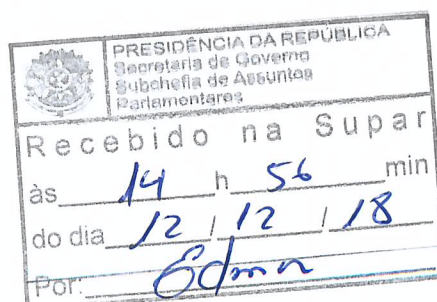 PRESIDÊNCIA DA REPÚBLICA
Secretaria de Governo
Subchefia de Assuntos
Parlamentares
Recebido na Supar
às 14 h 56 min
do dia 12 / 12 / 18
Por: